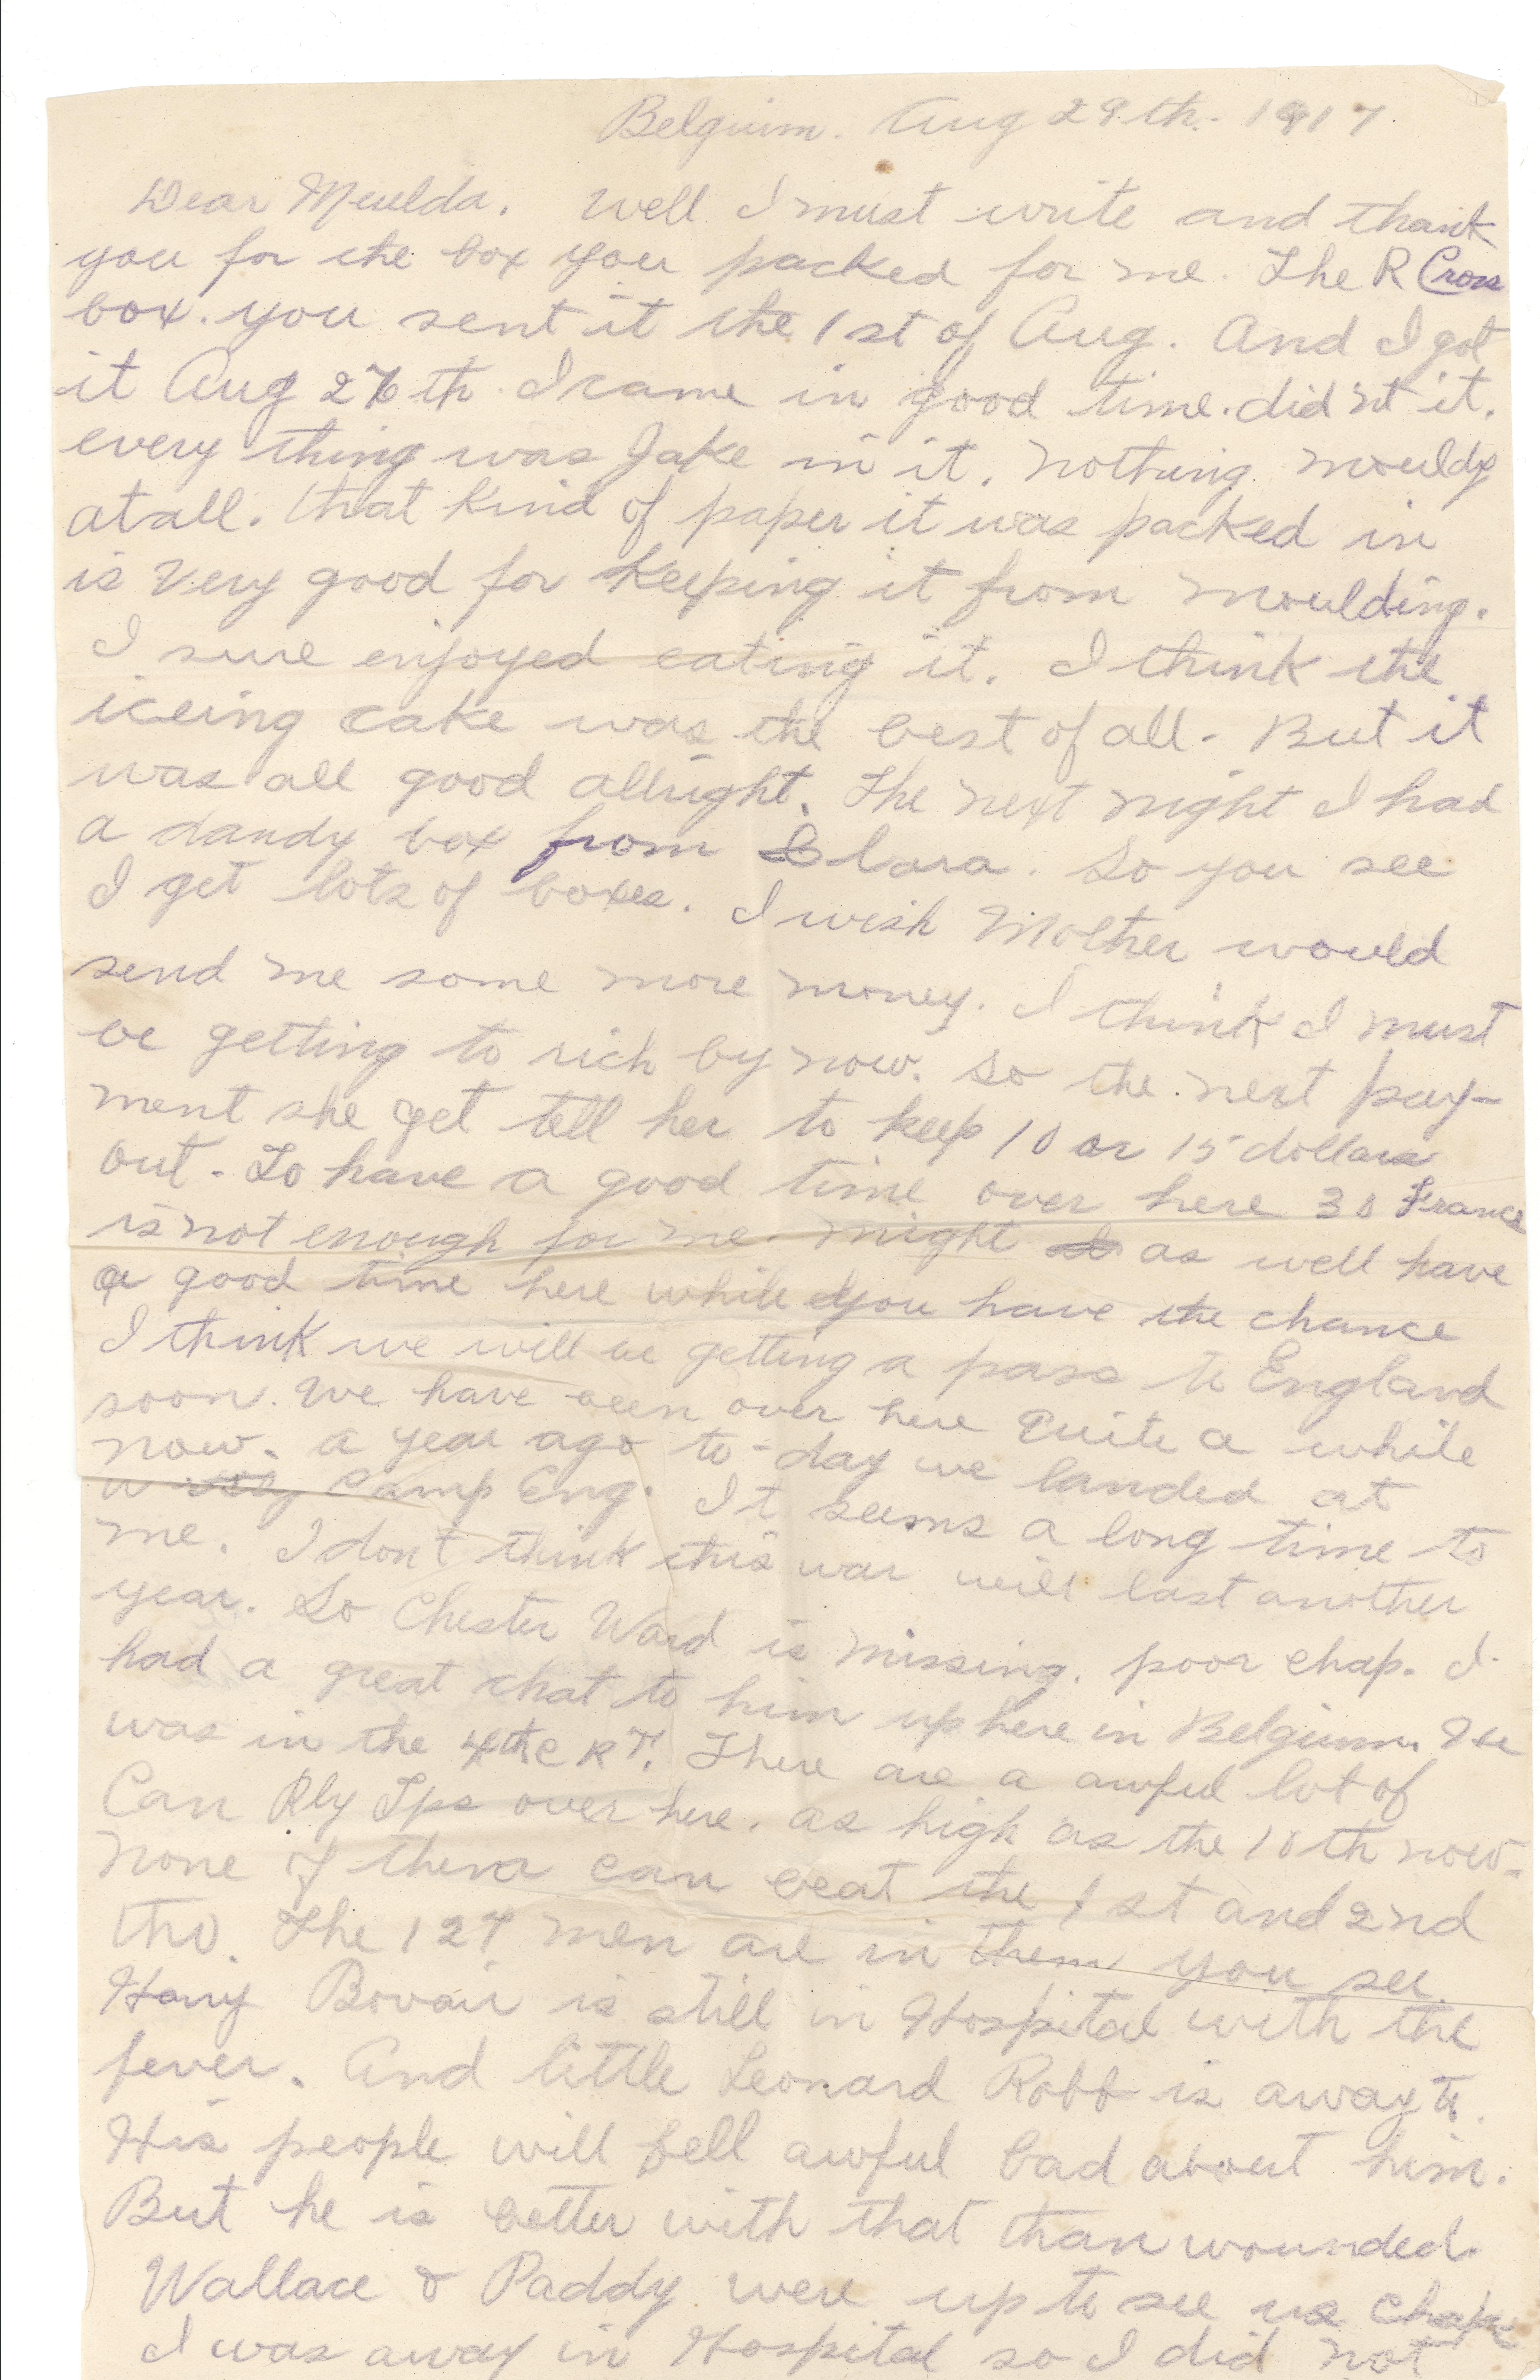 Belguim. Aug 29th. 1917.
Dear Meulda. Well I must write and thank
you for the box you packed for me. The R Cross
box. you sent it the 1st of Aug. And I got
it Aug 26th. I came in good time. did'nt it.
every thing was Jake in it. nothing mouldy
at all. that kind of paper it was packed in
is very good for keeping it from moulding.
I sure enjoyed eating it. I think the
iceing cake was the best of all. But it
was all good allright. The next night I had
a dandy box from Clara. So you see
I get lots of boxes. I wish Mother would
send me some more money. I think I must
be getting to rich by now. So the next pay-
ment she get tell her to keep 10 or 15 dollars
out. To have a good time over here 30 Francs
is not enough for me. might as well have
a good time here while you have the chance
I think we will be getting a pass to England
soon. We have been over here quite a while
now. a year ago to-day we landed at
Camp Eng. It seems a long time to
me. I don't think this war will last another
year. So Chester Ward is missing. poor chap. I
had a great chat to him up here in Belgium. He
was in the 4th C R T. There are a awful lot of
Can Rly Tps over here. as high as the 10th now.
none of them can beat the 1st and 2nd
tho. The 127 men are in them you see.
Harry Bovair is still in Hospital with the
fever. And little Leonard Robb is away to.
His people will fell awful bad about him.
But he is better with that than wounded.
Wallace & Paddy were up to see us chaps
I was away in Hospital so I did not